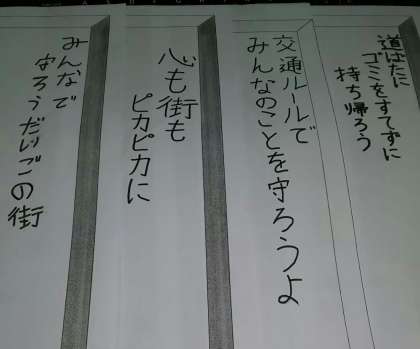 道ばたに
ゴミをすてずに
持ち帰ろう
交通ルールで
みんなのことを守ろうよ
心も街も
ピカピカに
みんなで
守ろうだいごの街